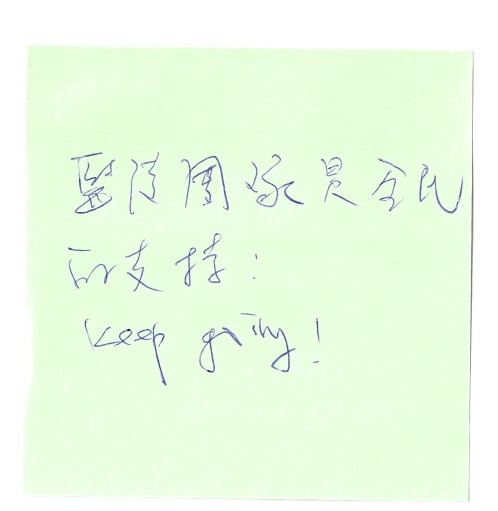 醫療團隊是全民
的支持：
keep going!